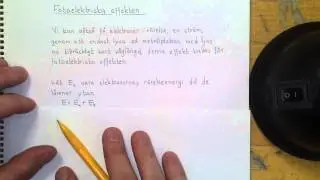 Fotoelektriska effekten
Vi kan alltså få elektroner i rörelse, en ström,
genom att endast lysa på metallplattan, med ljus
av tillräckligt kort våglängd, denna effekt kallas för
fotoelektriska effekten.
Låt Ek vara elektronernas rörelseenergi då de
lämnar ytan
E = Eu + Ek